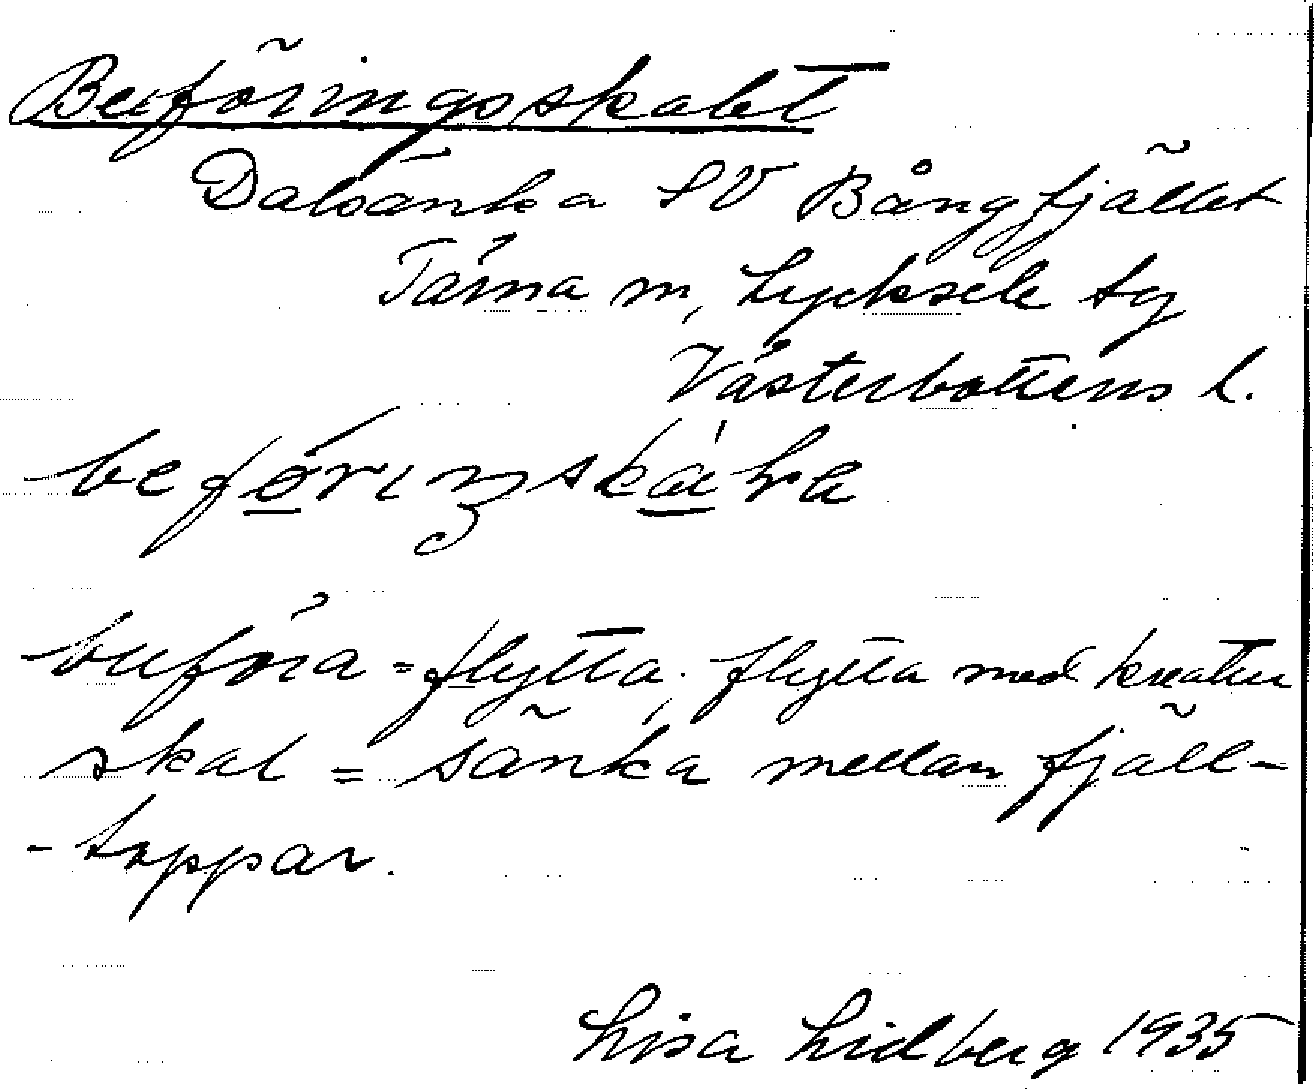 Beföringsskalet
Dalsänka SV Bångfjället
Tärna sn, Lycksele tg
Västerbottens l.
beföriŋskàƚa
buföra = flytta; flytta med kreatur
skal = sänka mellan fjäll-
- toppar.
Lisa Lidberg 1935